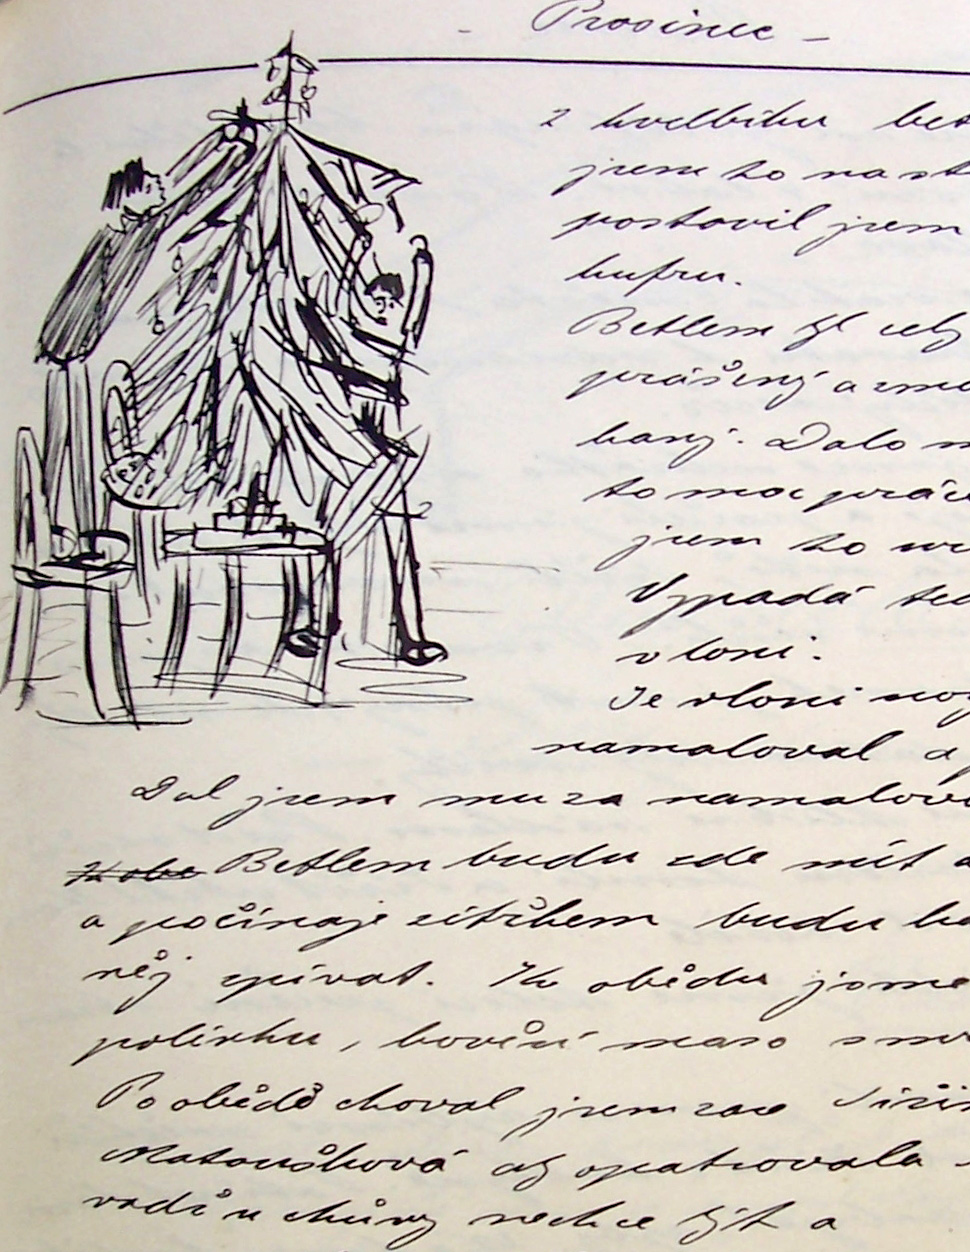 - Prosinec -
z kvelbíku bet
jsem to na st
postavil jsem
kufru.
Betlem byl celý
prášený a zma
haný. Dalo m
to moc prác
jsem to
Vypadá
vloni.
Je vloni
namaloval a
Dal jsem mu za namalová
K obě Betlem budu zde mít
a počínaje zítřkem budu
něj zpívat. K obědu jsme
polívku, hovězí maso
Po obědě choval jsem zase
Matoušková aby opatrovala
radí u chůvy nechce být a